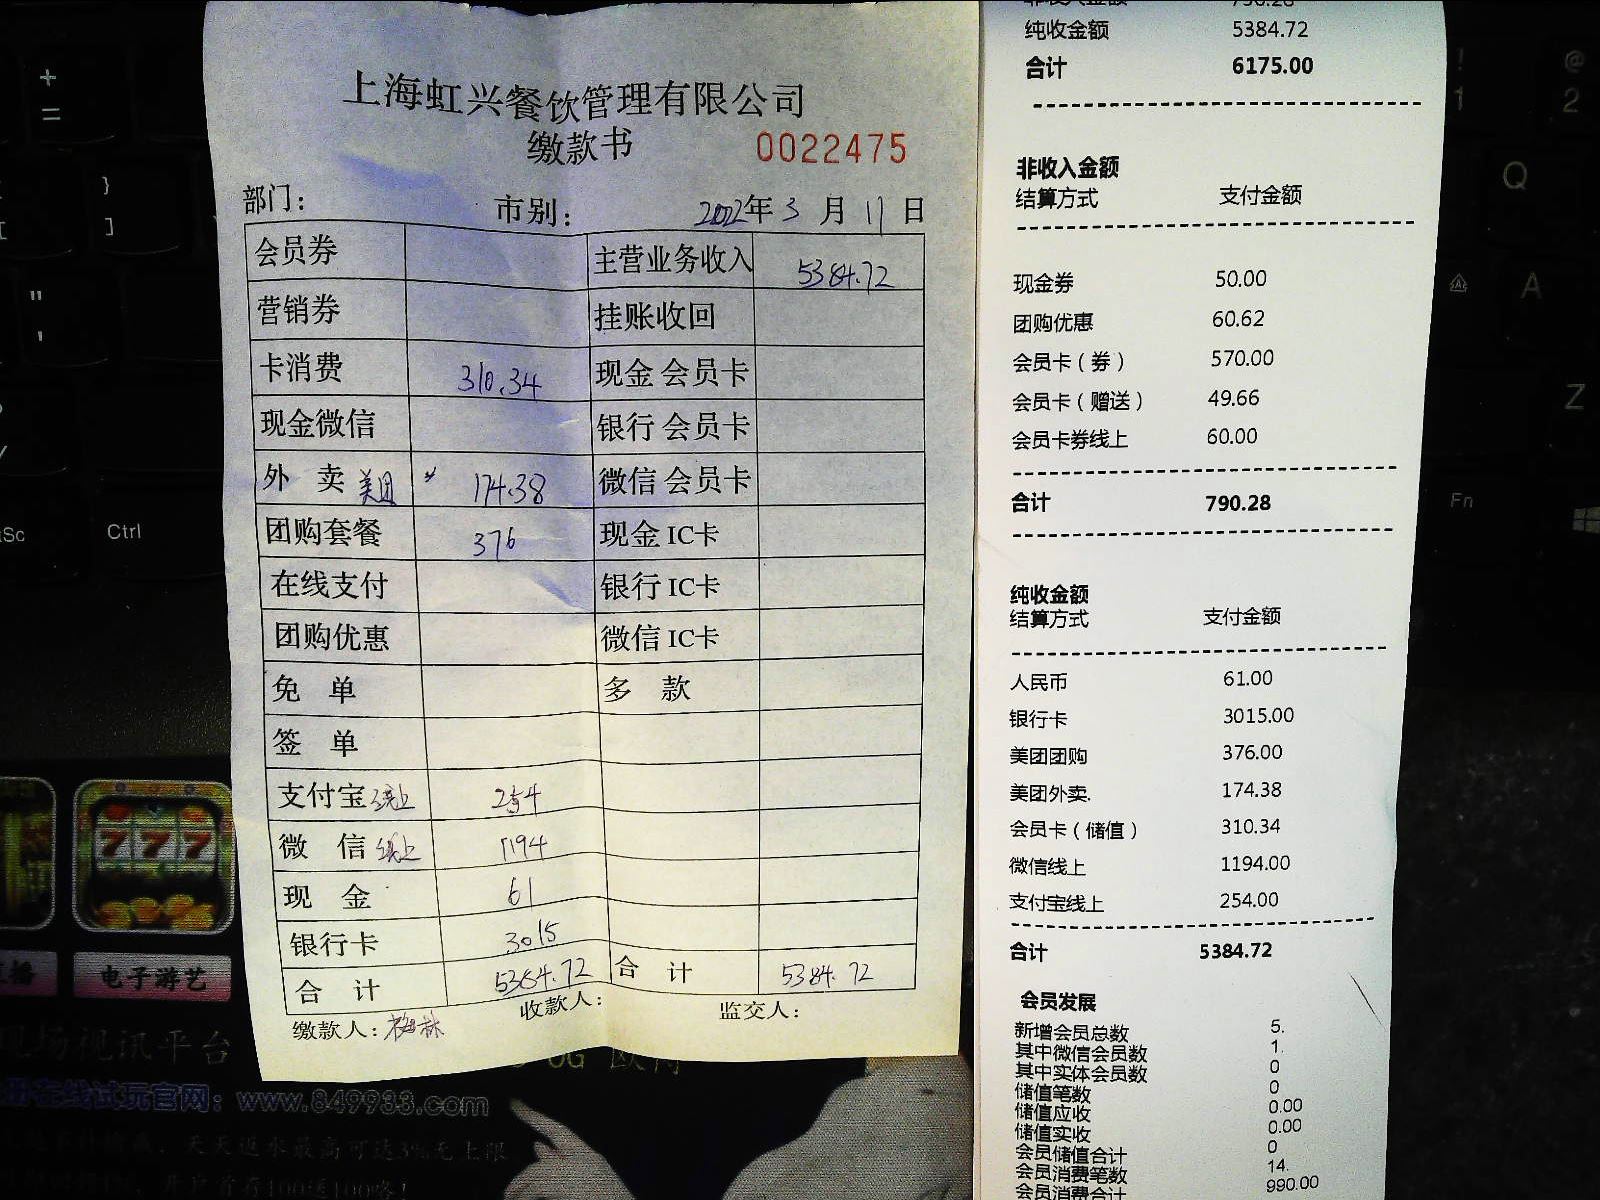 上海虹兴餐饮管理有限公司
缴款书
0022475
部门：
市别：
2022年3月11日
会员券
主营业务收入 5384.72
营销券
挂账收回
卡消费 310.34
现金 会员卡
现金微信
银行 会员卡
外 卖 美团 174.38
微信 会员卡
团购套餐 376
现金 IC卡
在线支付
银行 IC卡
团购优惠
微信 IC卡
免 单
多 款
签 单
支付宝 线上 254
微 信 线上 1194
现 金 61
银行卡 3015
合 计 5384.72
合 计 5384.72
缴款人：
收款人：
监交人：
纯收金额 5384.72
合计 6175.00
非收入金额
结算方式 支付金额
现金券 50.00
团购优惠 60.62
会员卡（券） 570.00
会员卡（赠送） 49.66
会员卡券线上 60.00
合计 790.28
纯收金额
结算方式 支付金额
人民币 61.00
银行卡 3015.00
美团团购 376.00
美团外卖. 174.38
会员卡（储值） 310.34
微信线上 1194.00
支付宝线上 254.00
合计 5384.72
会员发展
新增会员总数 5.
其中微信会员数 1.
其中实体会员数 0
储值笔数 0
储值应收 0.00
储值实收 0.00
会员储值合计 0
会员消费笔数 14.
会员消费合计 990.00
+
=
}
]
"
'
Ctrl
!
1
@
2
Q
A
Z
Fn
777
电子游艺
现场视讯平台
www.849933.com